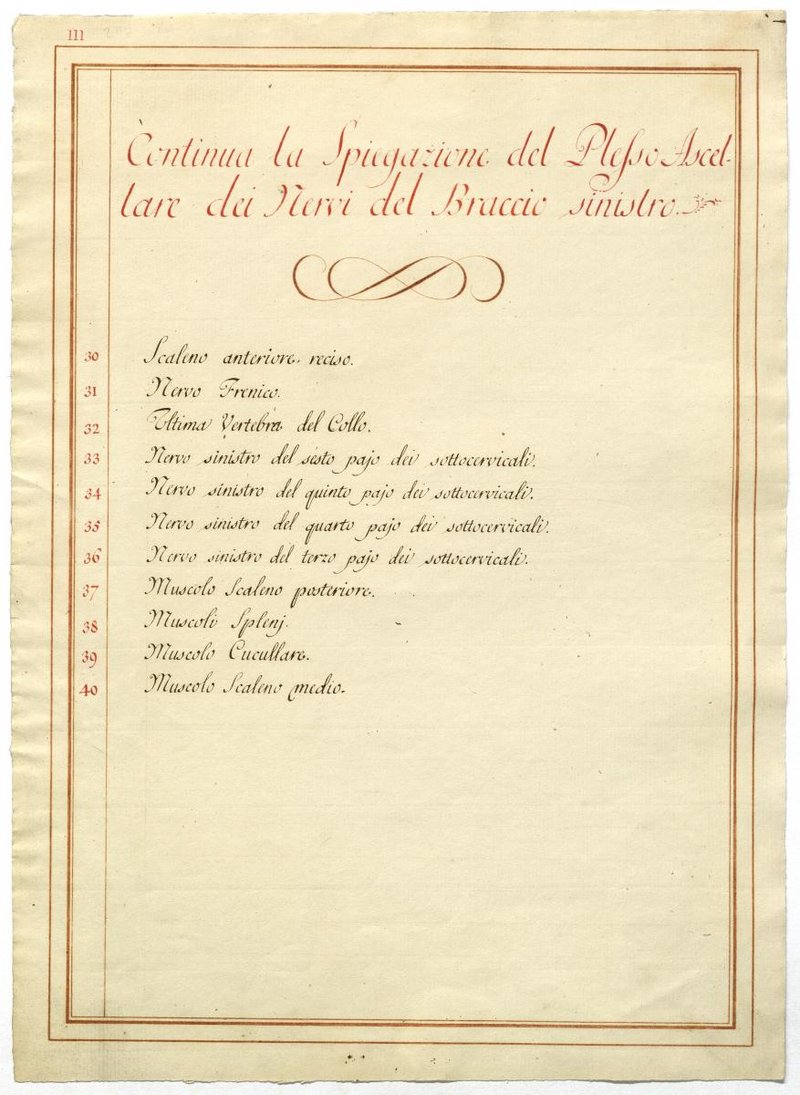 III
Continua la Spiegazione del Plesso Ascel-
lare dei Nervi del Braccio sinistro.
30 Scaleno anteriore, reciso.
31 Nervo Frenico.
32 Ultima Vertebra del Collo.
33 Nervo sinistro del sesto pajo dei sottocervicali.
34 Nervo sinistro del quinto pajo dei sottocervicali.
35 Nervo sinistro del quarto pajo dei sottocervicali.
36 Nervo sinistro del terzo pajo dei sottocervicali.
37 Muscolo Scaleno posteriore.
38 Muscoli Splenj.
39 Muscolo Cucullare.
40 Muscolo Scaleno medio.